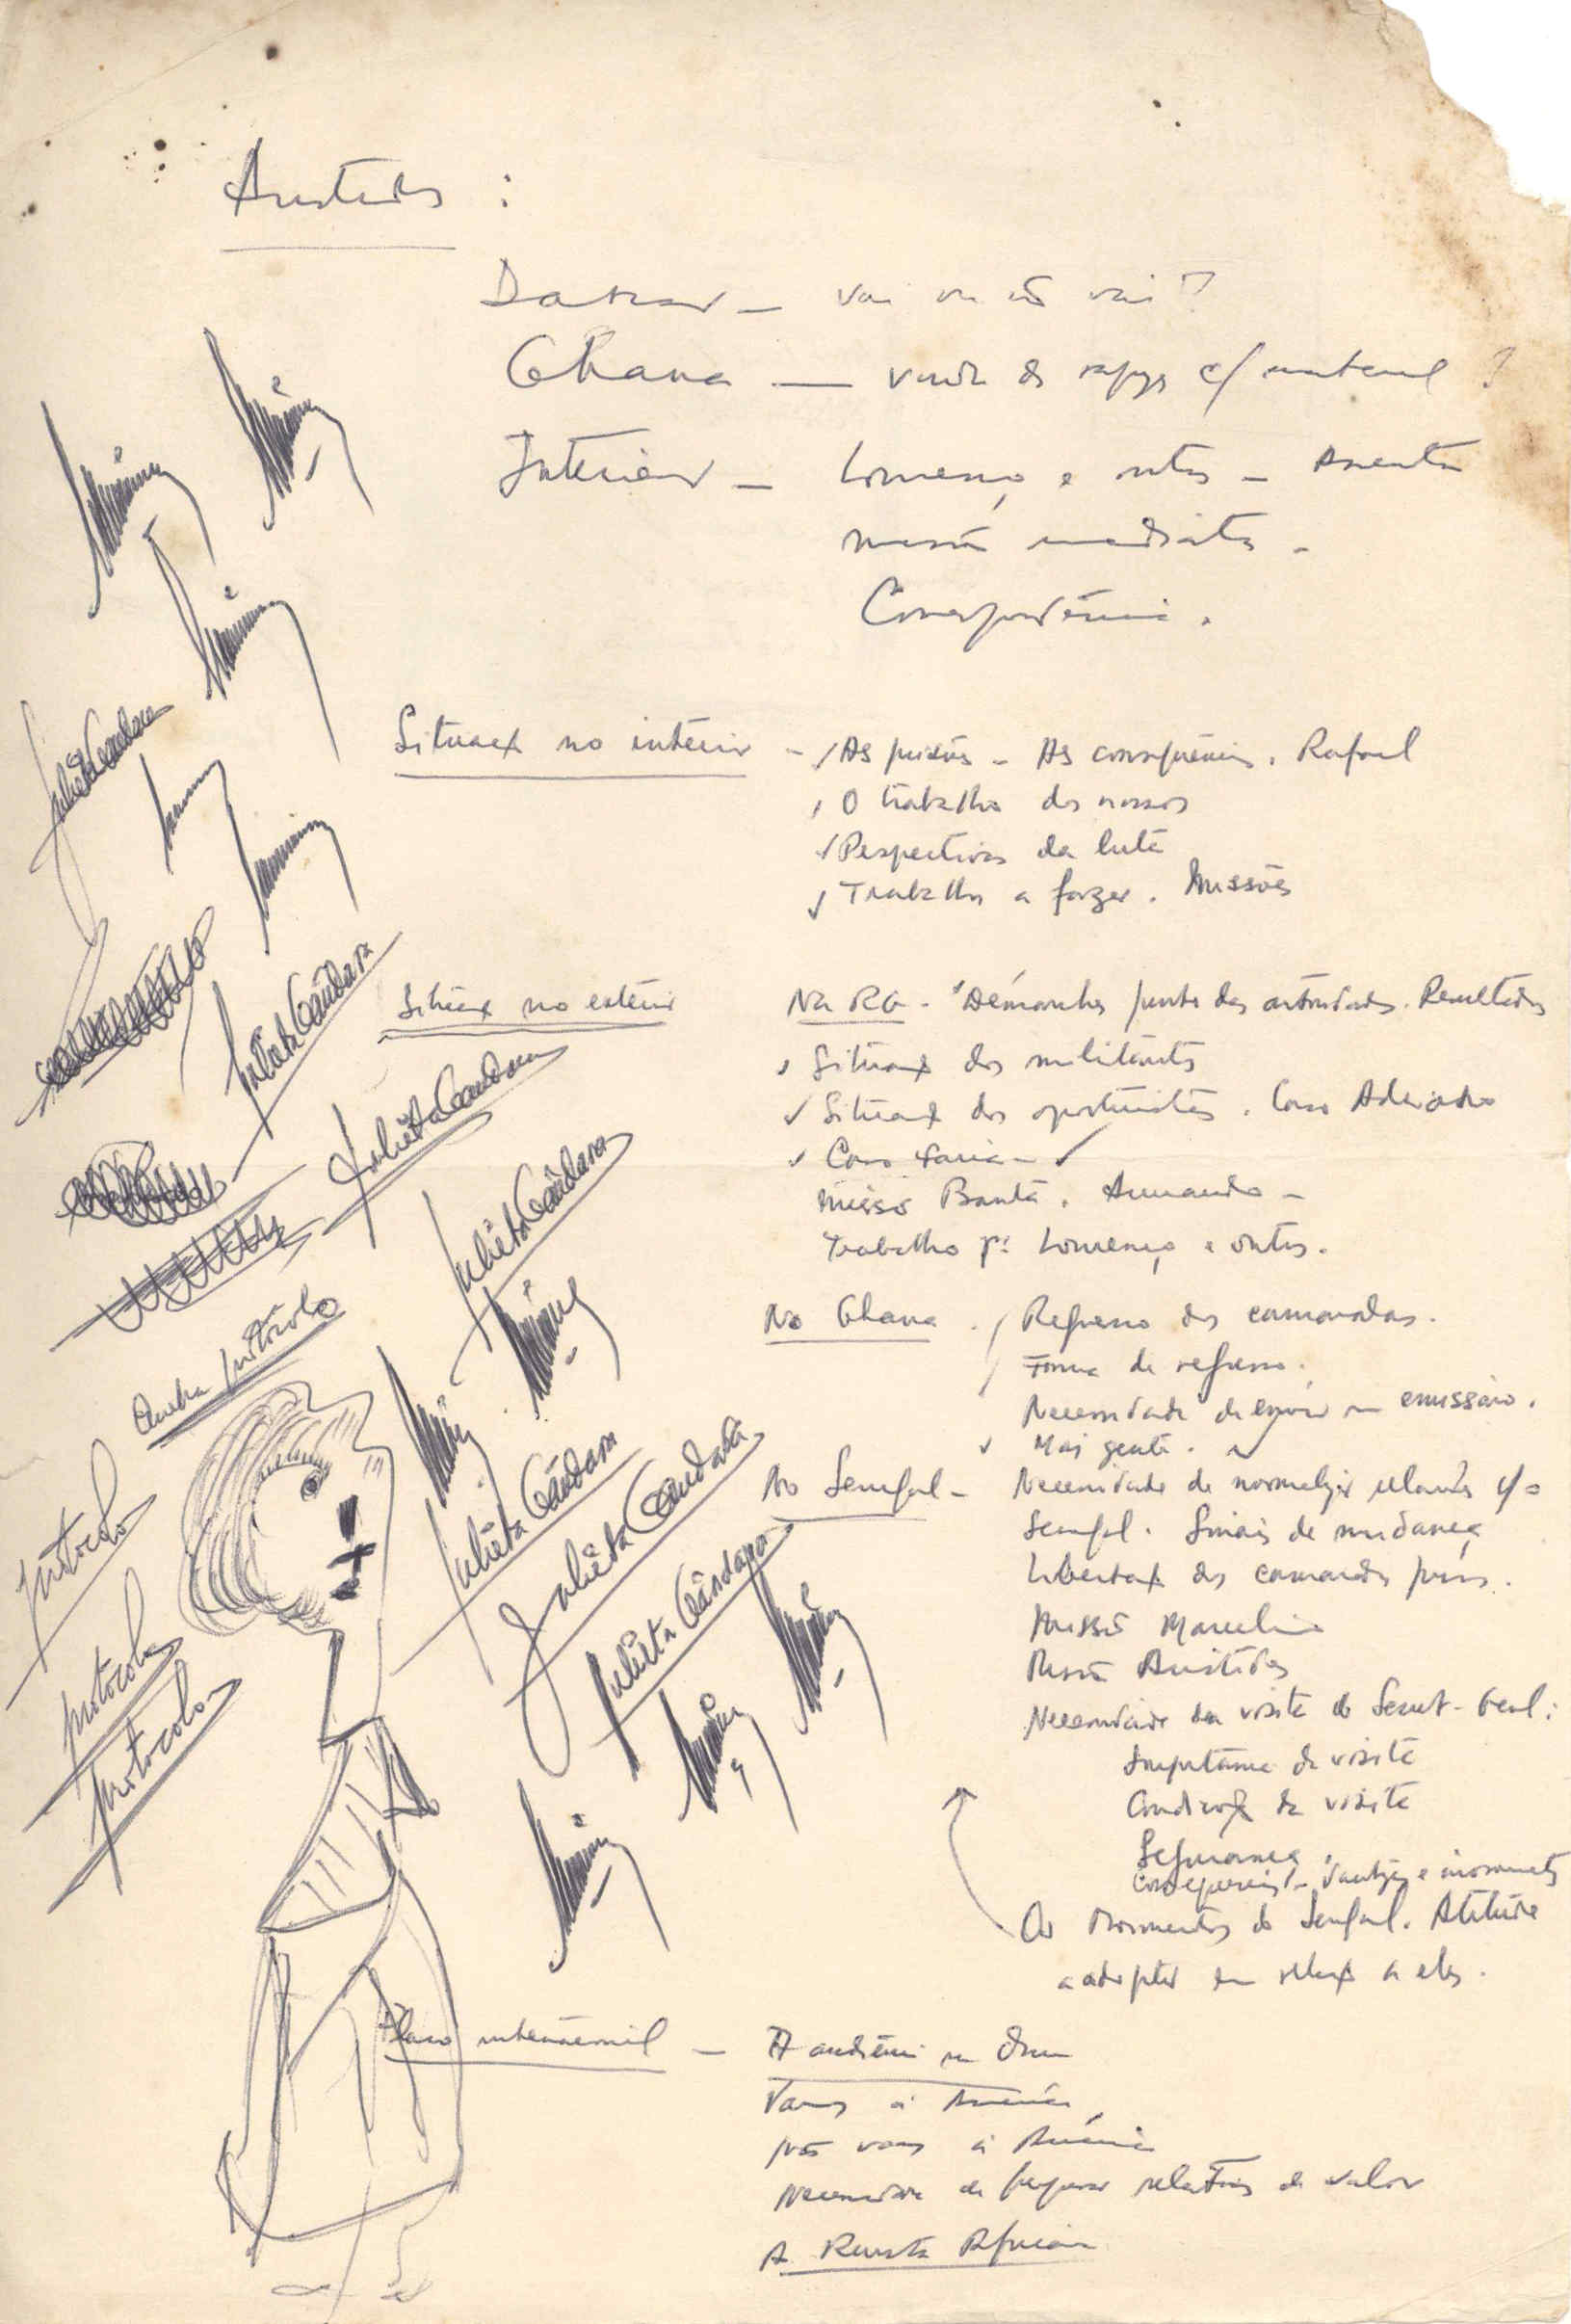 Aristides :
Dakar – vai ou não vai?
Ghana — vinda de rapazes c/ material ?
Interior – Lourenço e outros –
missão imediata –
Correspondência.
Situação no interior – As prisões – As consequências. Rafael
O trabalho dos nossos
Perspectivas da luta
Trabalho a fazer. Missões
Situação no exterior
Na RG. Démarches junto das autoridades. Resultados
Situação dos militantes
Situação dos oportunistas. Caso Adriano
Caso Faria –
Missão Bantã. Armando –
Trabalho p. Lourenço e outros.
No Ghana. Regresso dos camaradas.
Forma de regresso.
Necessidade de enviar um emissário.
Mais gente.
No Senegal – Necessidade de normalizar relações c/ o
Senegal. Sinais de mudança
Libertação dos camaradas presos.
Missão Marcelino
Missão Aristides
Necessidade da visita do Secret-Geral:
Importância da visita
Condições da visita
Segurança.
Consequências – Vantagens e
Os Movimentos do Senegal. Atitude
a adoptar em relação a eles.
Plano internacional – A audiência
Vamos à
Não vamos à
Necessidade de preparar relatórios de valor
A Revista Africana
Julieta Gândara
Julieta Gândara
Julieta Gândara
Julieta Gândara
Julieta Gândara
Julieta Gândara
Julieta Gândara
protocolo
protocolo
protocolo
protocolo